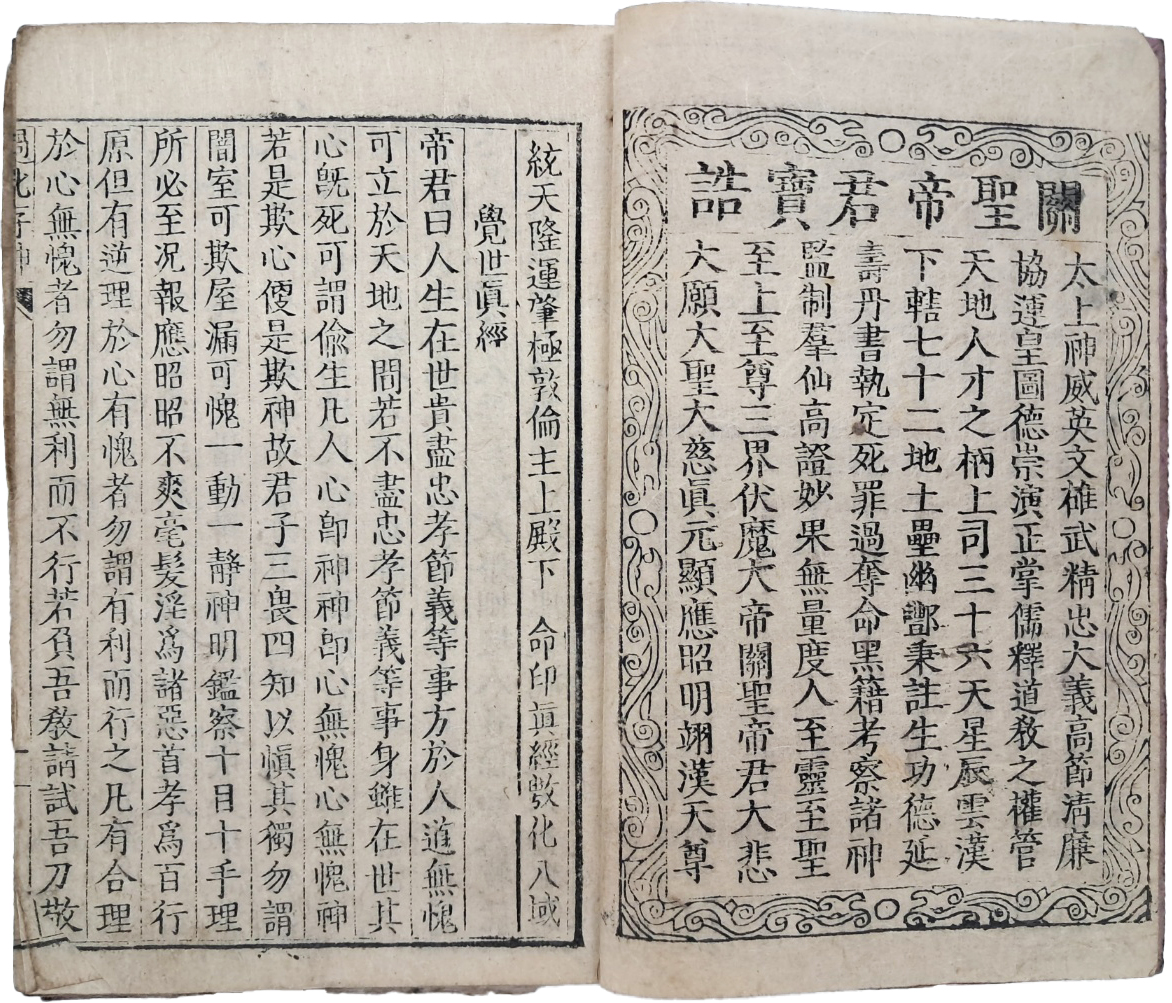 關聖帝君寶誥
太上神威英文雄武精忠大義高節清廉
協運皇圖德崇演正掌儒釋道教之權管
天地人才之柄上司三十六天星辰雲漢
下轄七十二地土壘幽酆秉註生功德延
壽丹書執定死罪過奪命黑籍考察諸神
監制羣仙高證妙果無量度人至靈至聖
至上至尊三界伏魔大帝關聖帝君大悲
大願大聖大慈眞元顯應昭明翊漢天尊
統天隆運肇極敦倫主上殿下 命印眞經敎化八域
覺世眞經
帝君曰人生在世貴盡忠孝節義等事方於人道無愧
可立於天地之間若不盡忠孝節義等事身雖在世其
心旣死可謂偸生凡人心卽神神卽心無愧心無愧神
若是欺心便是欺神故君子三畏四知以愼其獨勿謂
闇室可欺屋漏可愧一動一靜神明鑑察十目十手理
所必至况報應昭昭不爽毫髮淫爲諸惡首孝爲百行
原但有逆理於心有愧者勿謂有利而行之凡有合理
於心無愧者勿謂無利而不行若負吾敎請試吾刀敬
過化存神